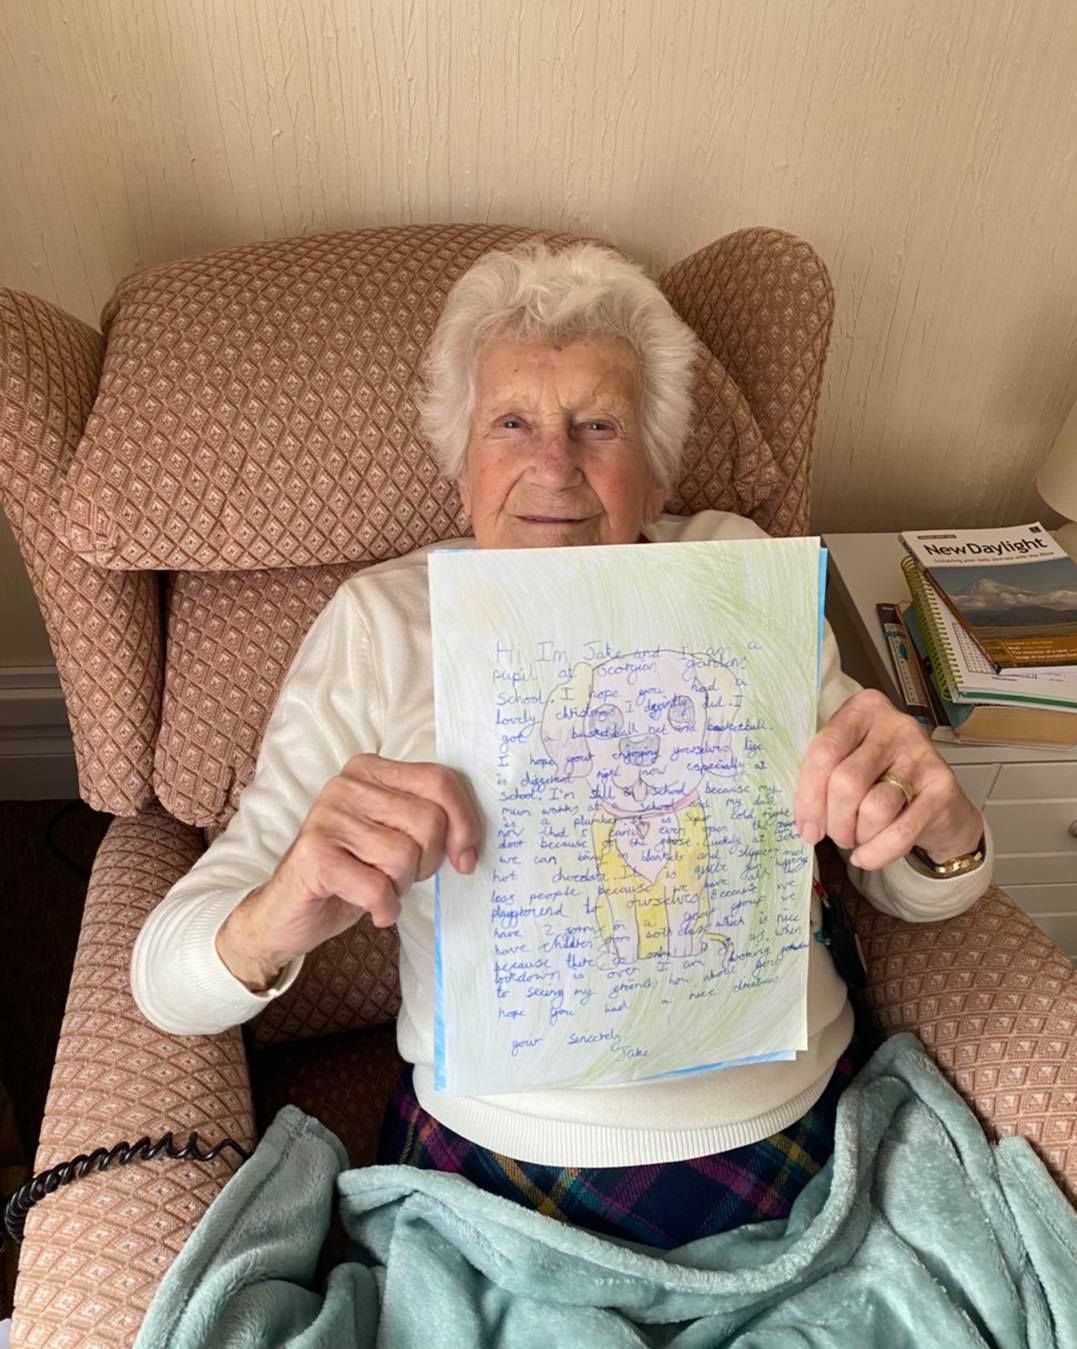 Hi I'm Jake and I am a
pupil at Georgian gardens
School. I hope you had a
lovely christmas I defintly did. I
got a basketball net and basketball.
I hope your enjoying yourselves life
is different right now especially at
School. I'm still in School because my
mum works at school and my dad
is a plumber. It is super cold right
now that I can't even open the
door because of the . Luckily at School
we can bring in blankets and slippers and
hot chocolate. It is quite
less people because we have all the
playground to ourselves. Because we
have 2 in a group we
have children from both class which is nice
because there is only us. When
lockdown is over I am looking forward
to seeing my friends how about you
hope you had a nice christmas
your sincerely
Jake
New Daylight
Sustaining your daily journey with the Bible